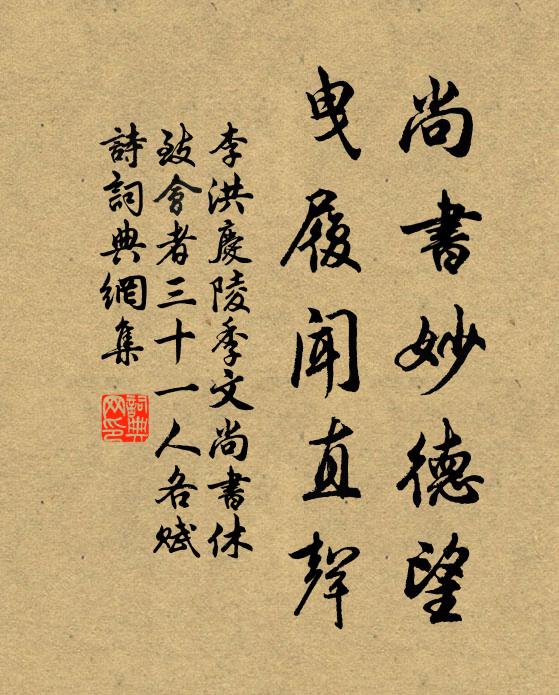 尚書妙德望
曳履聞直聲
李洪慶陵季文尚書休
致會者三十一人各賦
詩詞典網集
詞典
网印